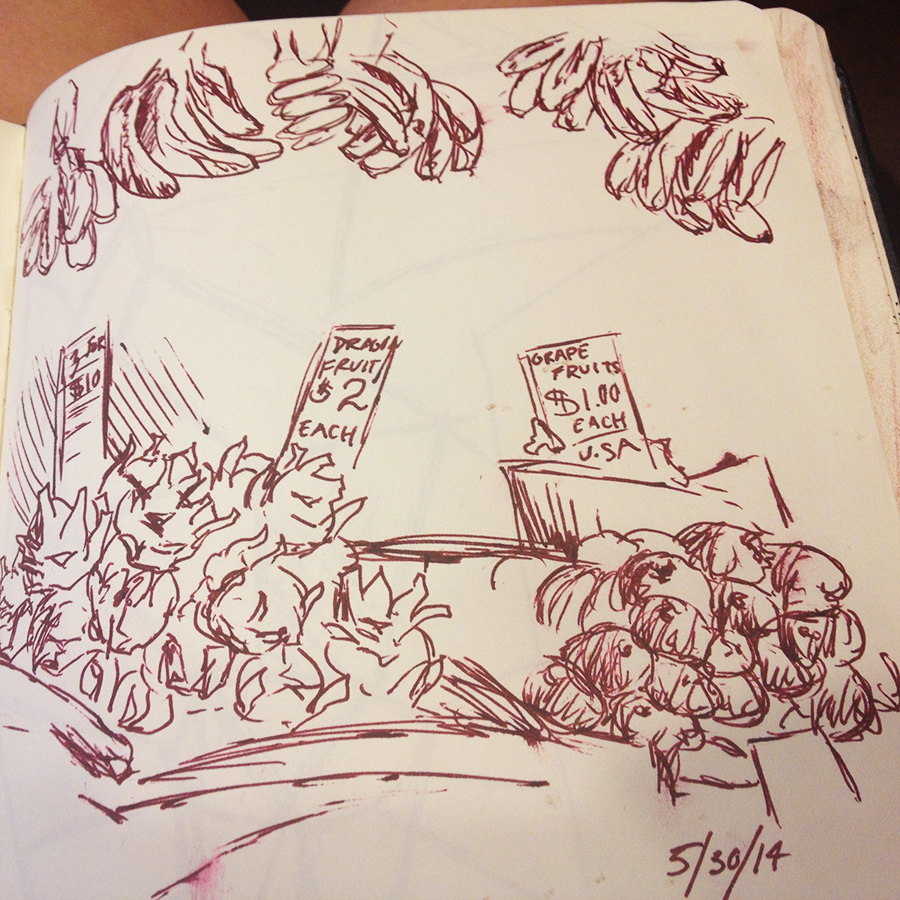 3 FOR
$10
DRAGON
FRUIT
$2
EACH
GRAPE
FRUITS
$1.00
EACH
U.S.A
5/30/14